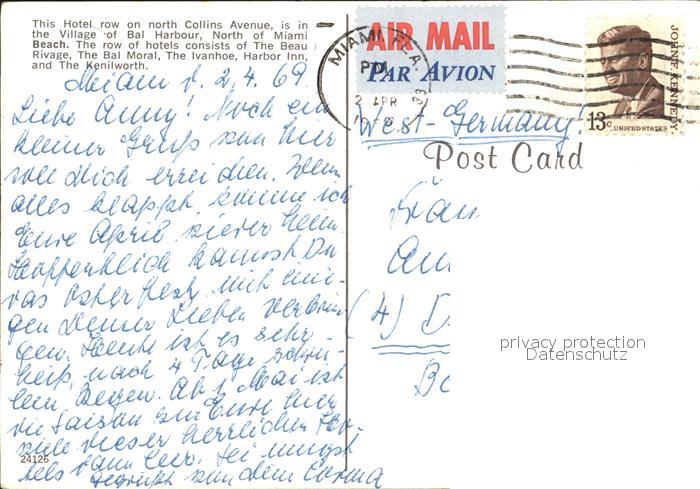 This Hotel row on north Collins Avenue, is in
the Village of Bal Harbour, North of Miami
Beach. The row of hotels consists of The Beau
Rivage, The Bal Moral, The Ivanhoe, Harbor Inn,
and The Kenilworth.
AIR MAIL
PAR AVION
MIAMI, FLA.
PM
2 APR
JOHN F. KENNEDY
13c UNITED STATES
West-Germany!
Post Card
Miami d. 2.4.69.
Liebe Anny! Noch ein
kleiner Gruß von hier
soll dich erreichen. Wenn
alles klappt, komme ich
Ende April wieder heim.
Hoffentlich kannst Du
das Osterfest mit eini-
gen Deiner Lieben verbrin-
gen. Heute ist es sehr
heiß, nach 4 Tage
kein Regen. Ab 1. Mai ist
die Saison zu Ende hier
viele dieser herrlichen Ho-
tels dann leer. Sei innigst
gegrüßt von dem
24126
Frau
(4) D
privacy protection
Datenschutz